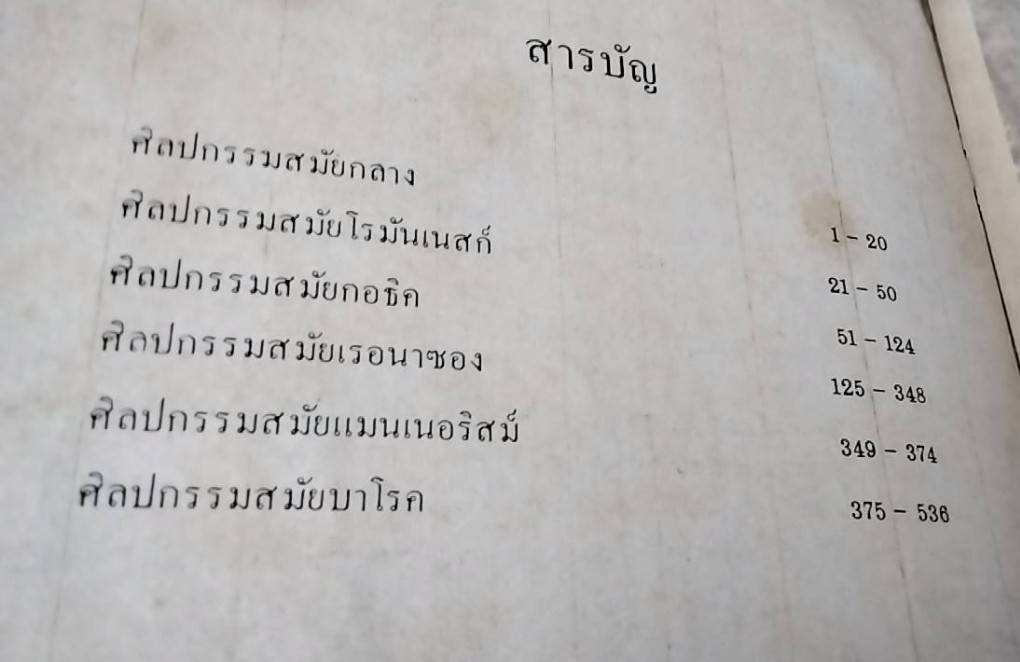 สารบัญ
ศิลปกรรมสมัยกลาง 1 – 20
ศิลปกรรมสมัยโรมันเนสก์ 21 – 50
ศิลปกรรมสมัยกอธิค 51 – 124
ศิลปกรรมสมัยเรอนาซอง 125 – 348
ศิลปกรรมสมัยแมนเนอริสม์ 349 – 374
ศิลปกรรมสมัยบาโรค 375 – 536